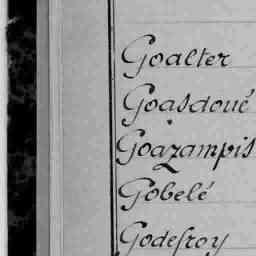 Goalter
Goasdoué
Goazampis
Gobelé
Godefroy